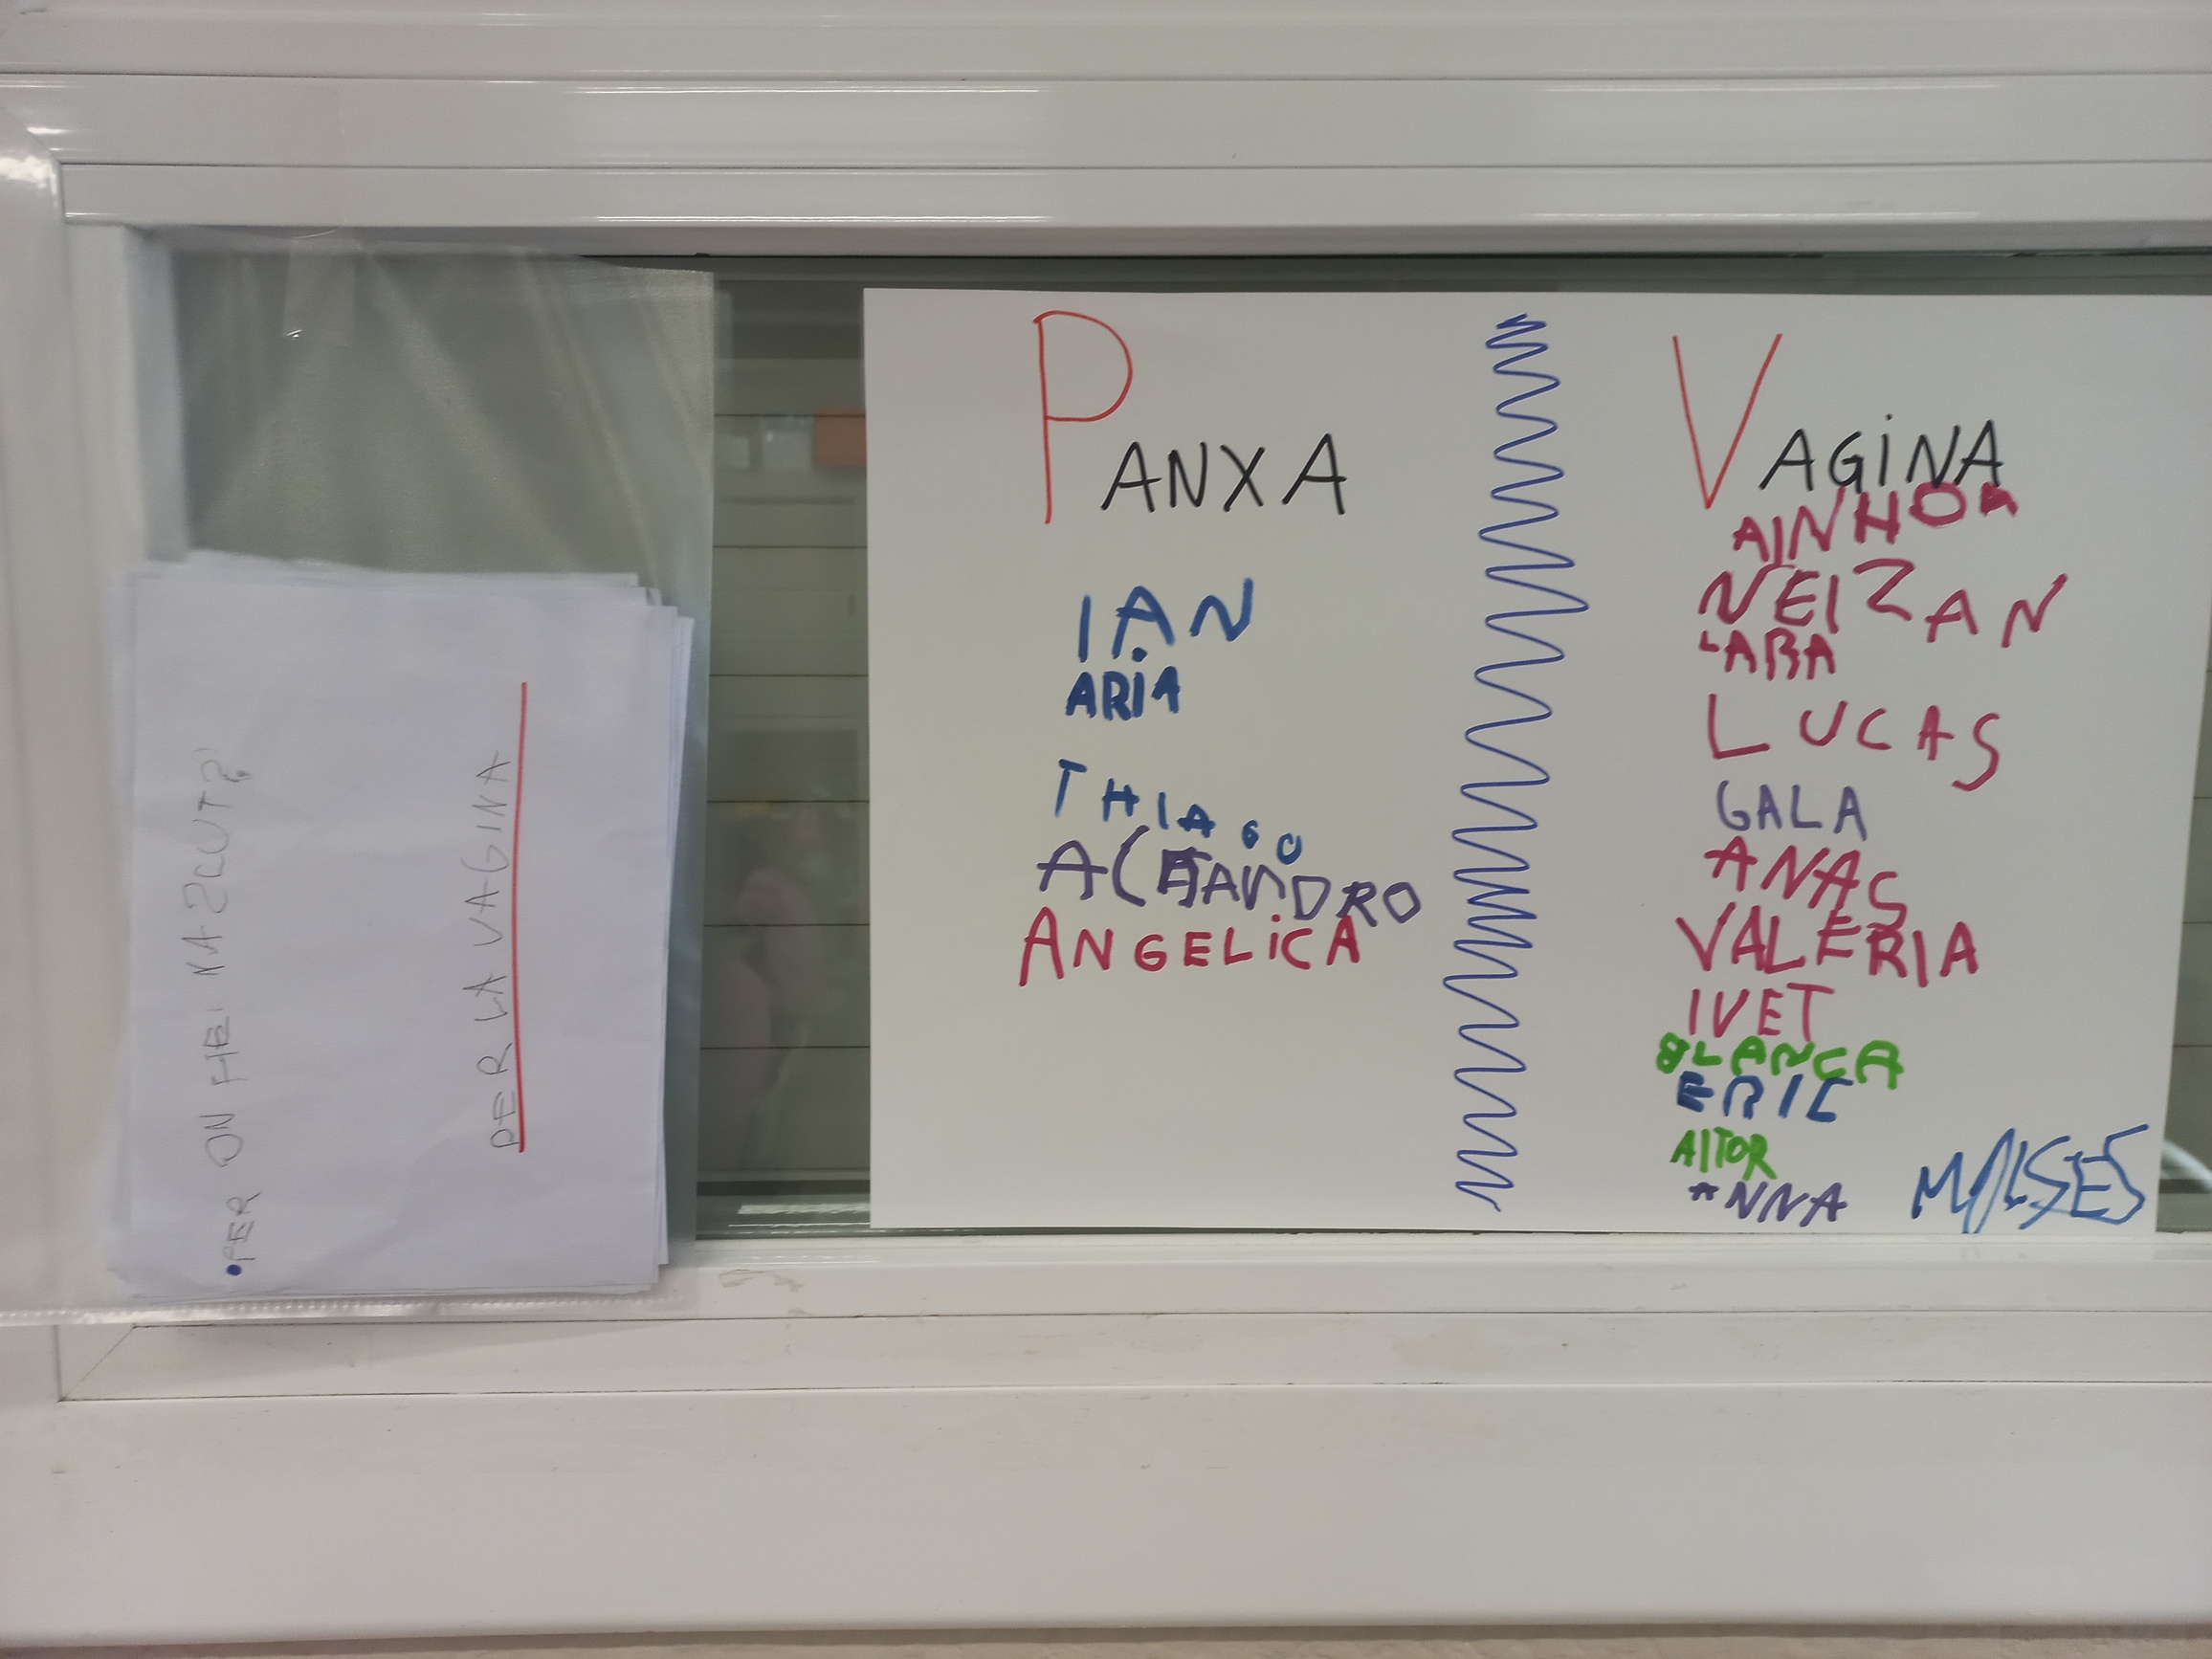 •PER ON HEI NASCUT?
PER LA VAGINA
PANXA
IAN
ARIA
THIAGO
ALEJANDRO
ANGELICA
VAGINA
AINHOA
NEIZAN
LARA
LUCAS
GALA
ANAS
VALERIA
IVET
BLANCA
ERIC
AITOR
ANNA
MOISES